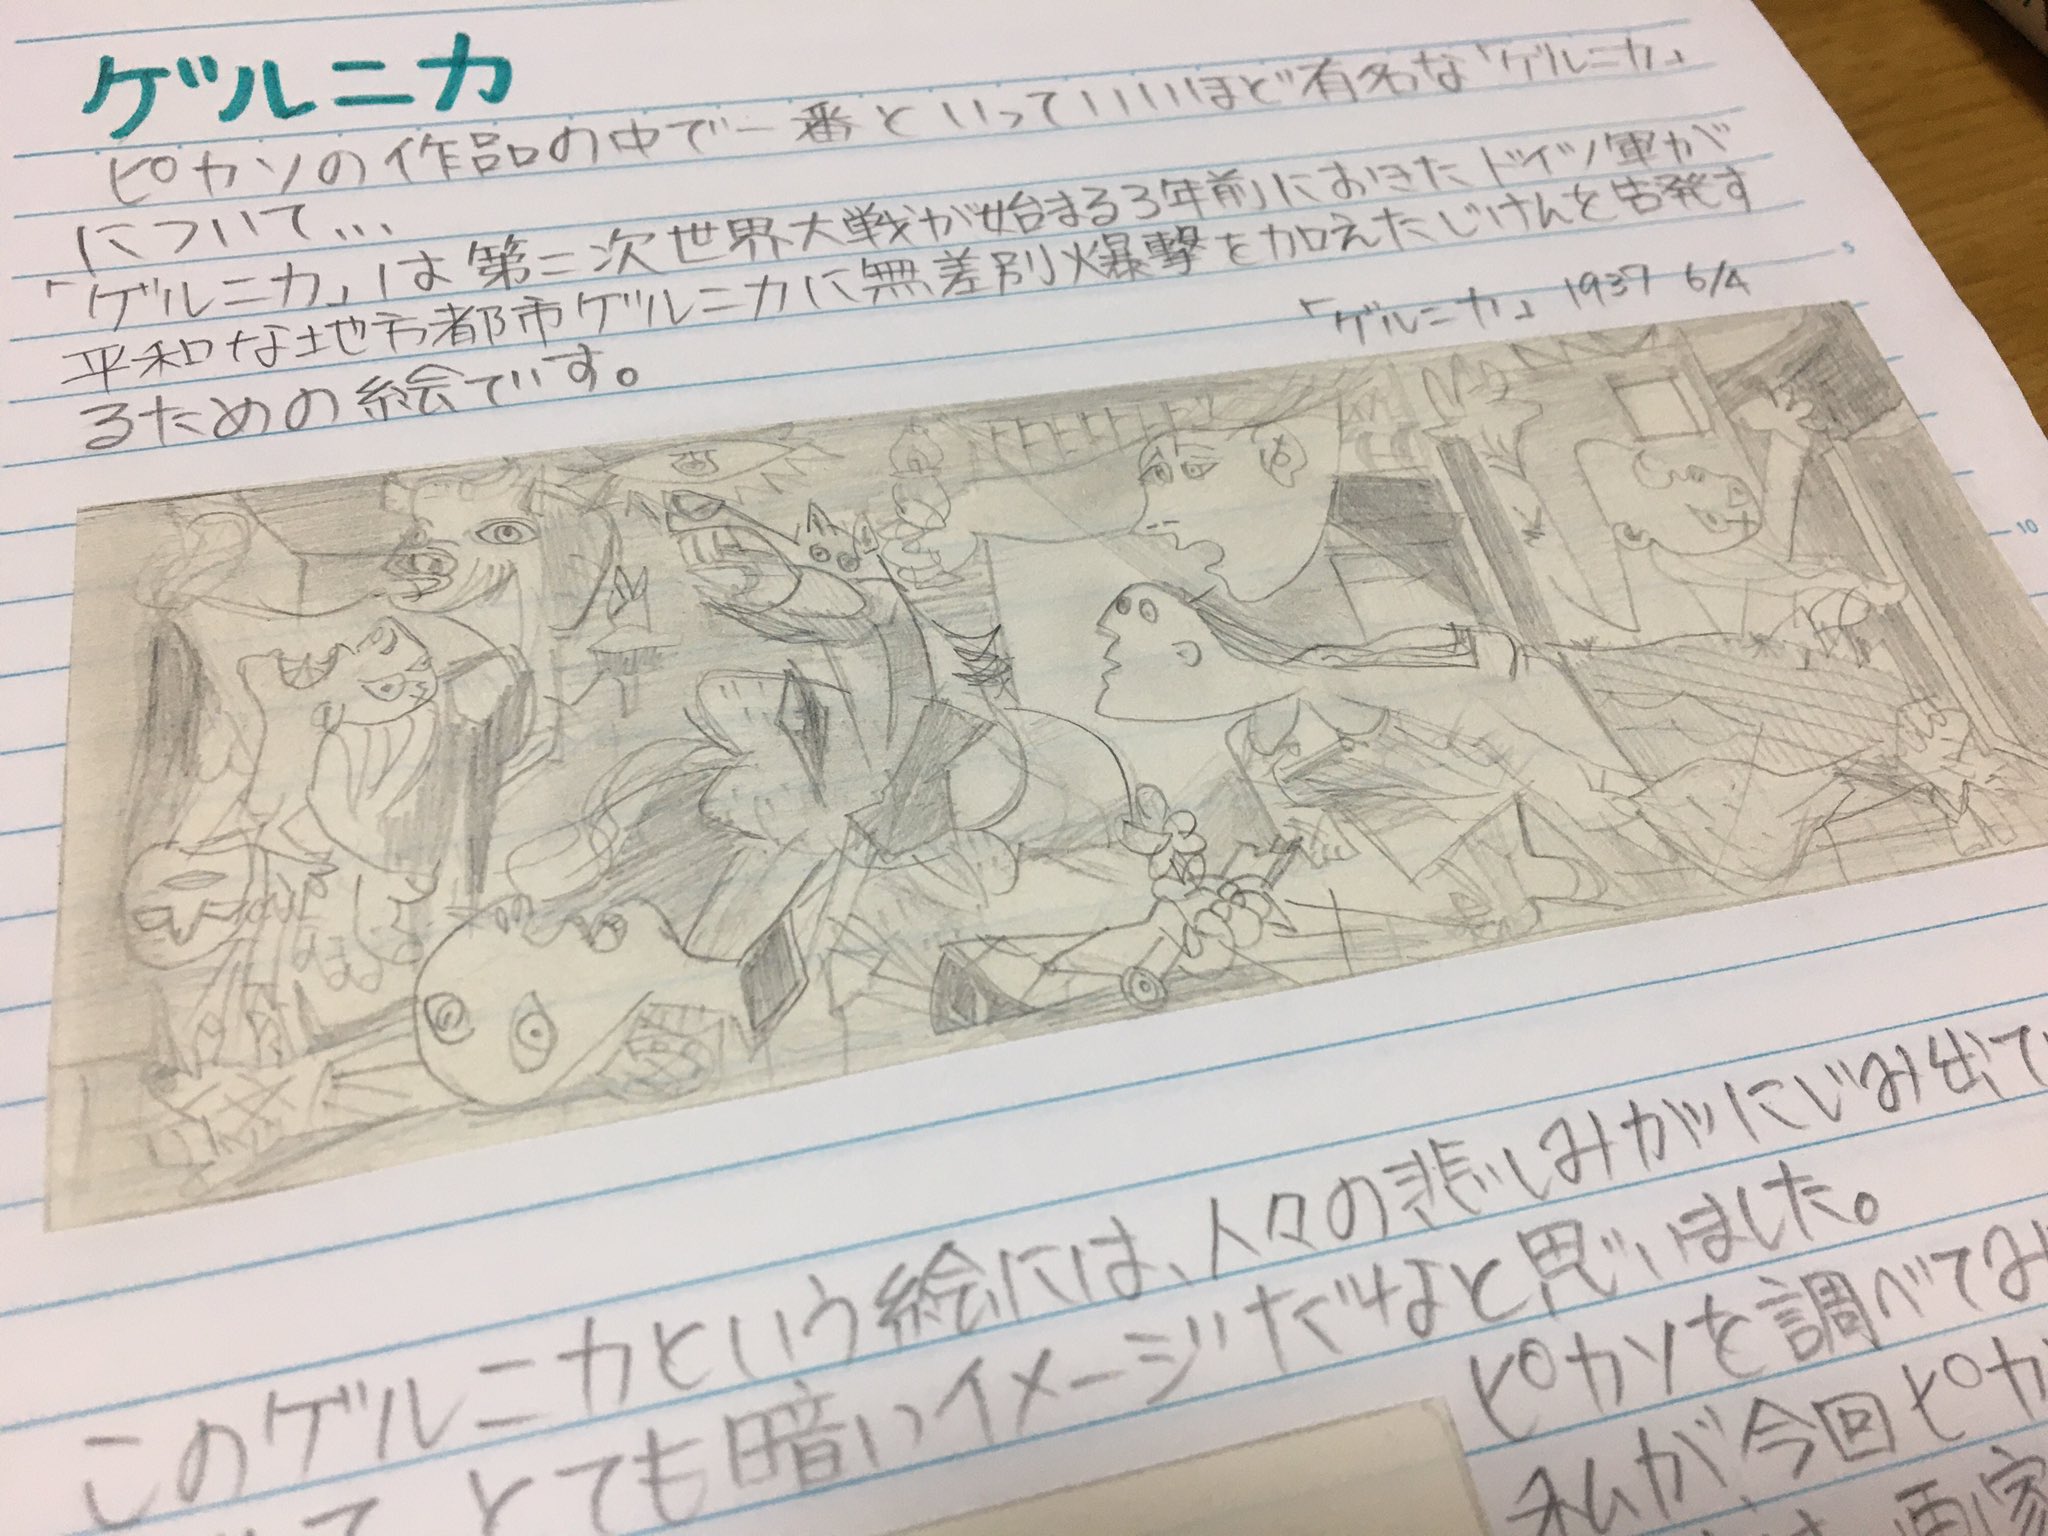 ゲルニカ
ピカソの作品の中で一番といっていいほど有名な「ゲルニカ」
について...
「ゲルニカ」は第二次世界大戦が始まる3年前におきたドイツ軍が
平和な地方都市ゲルニカに無差別爆撃を加えたじけんを告発す
るための絵です。
「ゲルニカ」 1937 6/4
5
10
このゲルニカという絵には、人々の悲しみがにじみ出て
とても暗いイメージだなと思いました。
ピカソを調べてみ
私が今回ピカ
画家